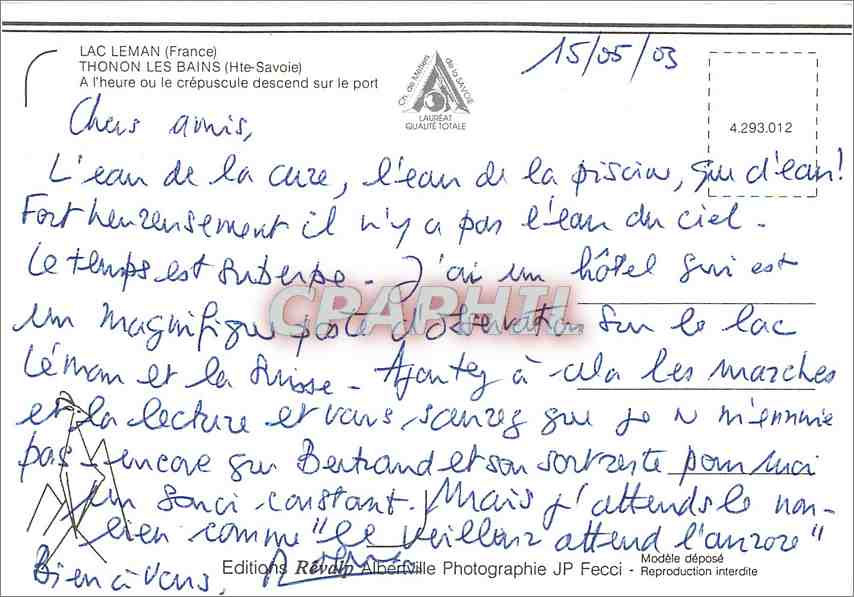 LAC LEMAN (France)
THONON LES BAINS (Hte-Savoie)
A l'heure ou le crépuscule descend sur le port
Ch. de Métiers de la SAVOIE
LAURÉAT
QUALITÉ TOTALE
15/05/03
4.293.012
Chers amis,
L'eau de la cure, l'eau de la piscine, que d'eau!
Fort heureusement il n'y a pas l'eau du ciel.
Le temps est superbe - J'ai un hôtel qui est
un magnifique poste d'observation sur le lac
Léman et la Suisse - Ajoutez à cela les marches
et la lecture et vous saurez que je ne m'ennuie
pas - encore que Bertrand et son sort reste pour moi
un souci constant. Mais j'attends le non-
lien comme "le veilleur attend l'aurore"
Bien à vous,
CPAPHIL
Editions Révalp Albertville Photographie JP Fecci - Modèle déposé
Reproduction interdite